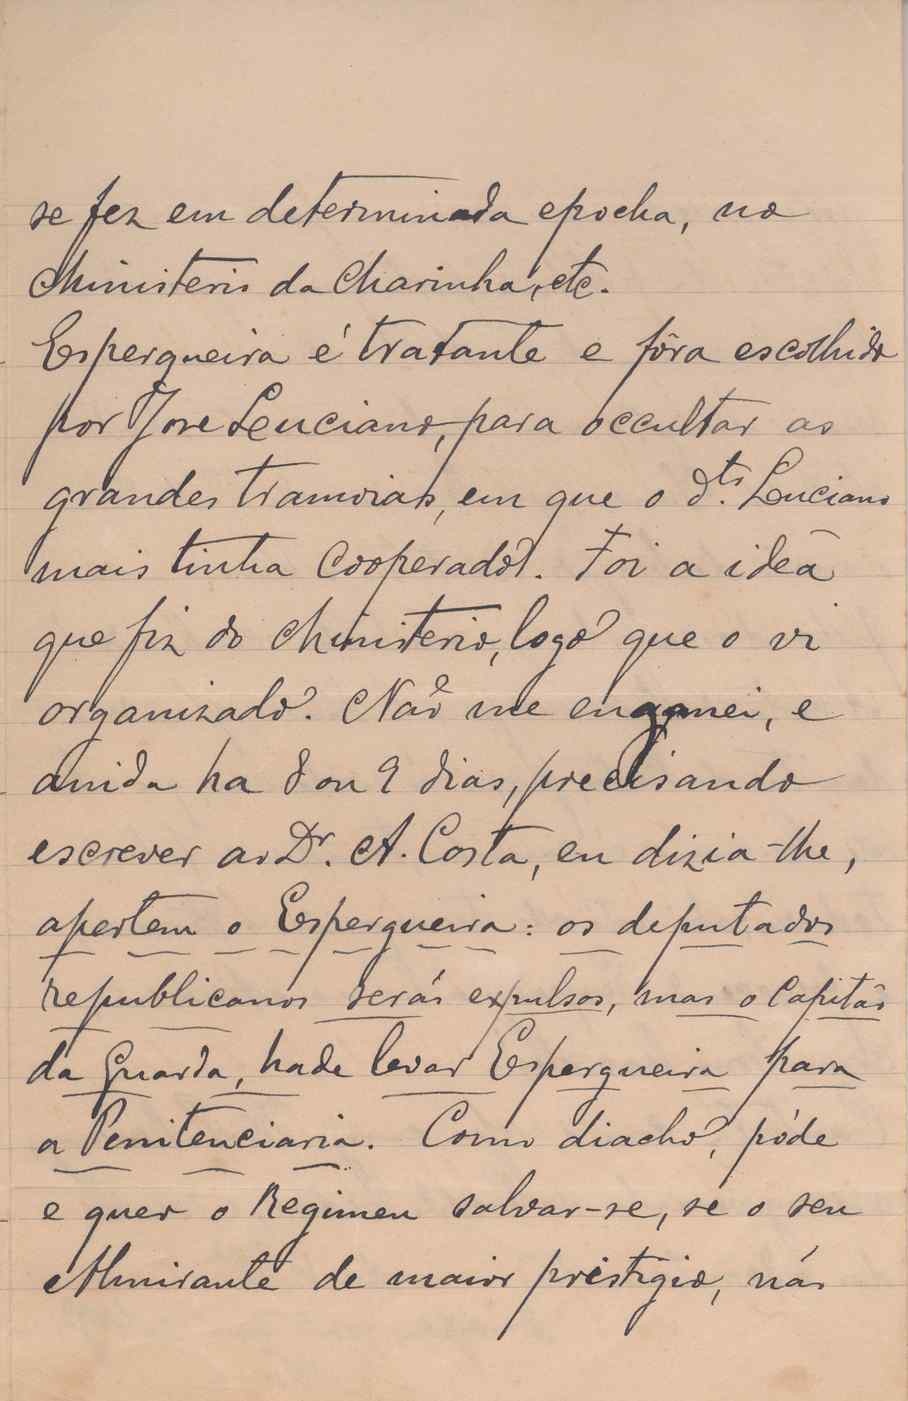 se fez em determinada epocha, no
Ministerio da Marinha, etc.
Espergueira é tratante e fôra escolhido
por José Luciano, para occultar as
grandes tramoias, em que o dts. Luciano
mais tinha cooperado. Foi a idéa
que fiz do Ministerio, logo que o vi
organizado. Não me enganei, e
ainda ha 8 ou 9 dias, precisando
escrever ao Dr. A. Costa, eu dizia-lhe,
apertem o Espergueira: os deputados
republicanos serás expulsos, mas o Capitão
da Guarda, hade levar Espergueira para
a Penitenciaria. Como diacho, póde
e quer o Regimen salvar-se, se o seu
Almirante de maior prestigio, nás